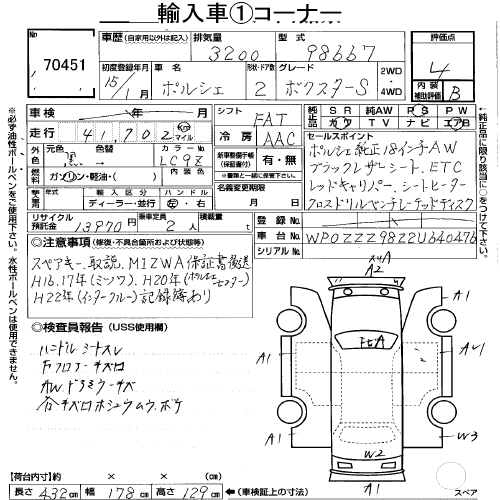 輸入車①コーナー
70451
車歴(自家用以外は記入) 排気量 3200 型式 98667
評価点 4
内装補助評価 B
初度登録年月 15年/1月 車名 ポルシェ 形状・ドア数 2 グレード ボクスターS 2WD・4WD
車検 年 月 シフト FAT
純正品 SR 純正AW PS PW カワ TV ナビ エアB
走行 41,702 マイル 冷房 AAC
外色 元色 黒 色替 カラーNo. LC9Z
燃料 ガソリン・軽油・( ) 内装色
新車整備手帳(保証書付) 有・無
※書類と一緒に保管して下さい。
乗用 年式 輸入区分 ディーラー・並行 ハンドル 左・右
名義変更期限 月 日
セールスポイント
ポルシェ純正18インチAW
ブラックレザーシート、ETC
レッドキャリパー、シートヒーター
クロスドリルベンチレーテッドディスク
リサイクル預託金 13870 乗車定員 2人 積載量 t
登録No.
車台No. WP0ZZZ98Z2U640476
シリアルNo.
◎注意事項(修復・不具合箇所および状態等)
スペアキー、取説、MIZWA保証書後送
H16.17年(ミツワ)、H20年(ポルシェセンター)
H22年(インタークルー)記録簿有り
◎検査員報告(USS使用欄)
ハンドルシートスレ
Fフロアーキズ
AWドラミラーキズ
各キズ
スリA
A2
A1
A1
A1
A1
A1
W3
W2
A1
スペア
【荷台内寸】約 × × (cm)
長さ 432cm 幅 178cm 高さ 129cm ←(車検証上の寸法)
※必ず油性ボールペンを使用して下さい。水性ボールペンは使用できません。
←純正品に限り該当に○をして下さい。